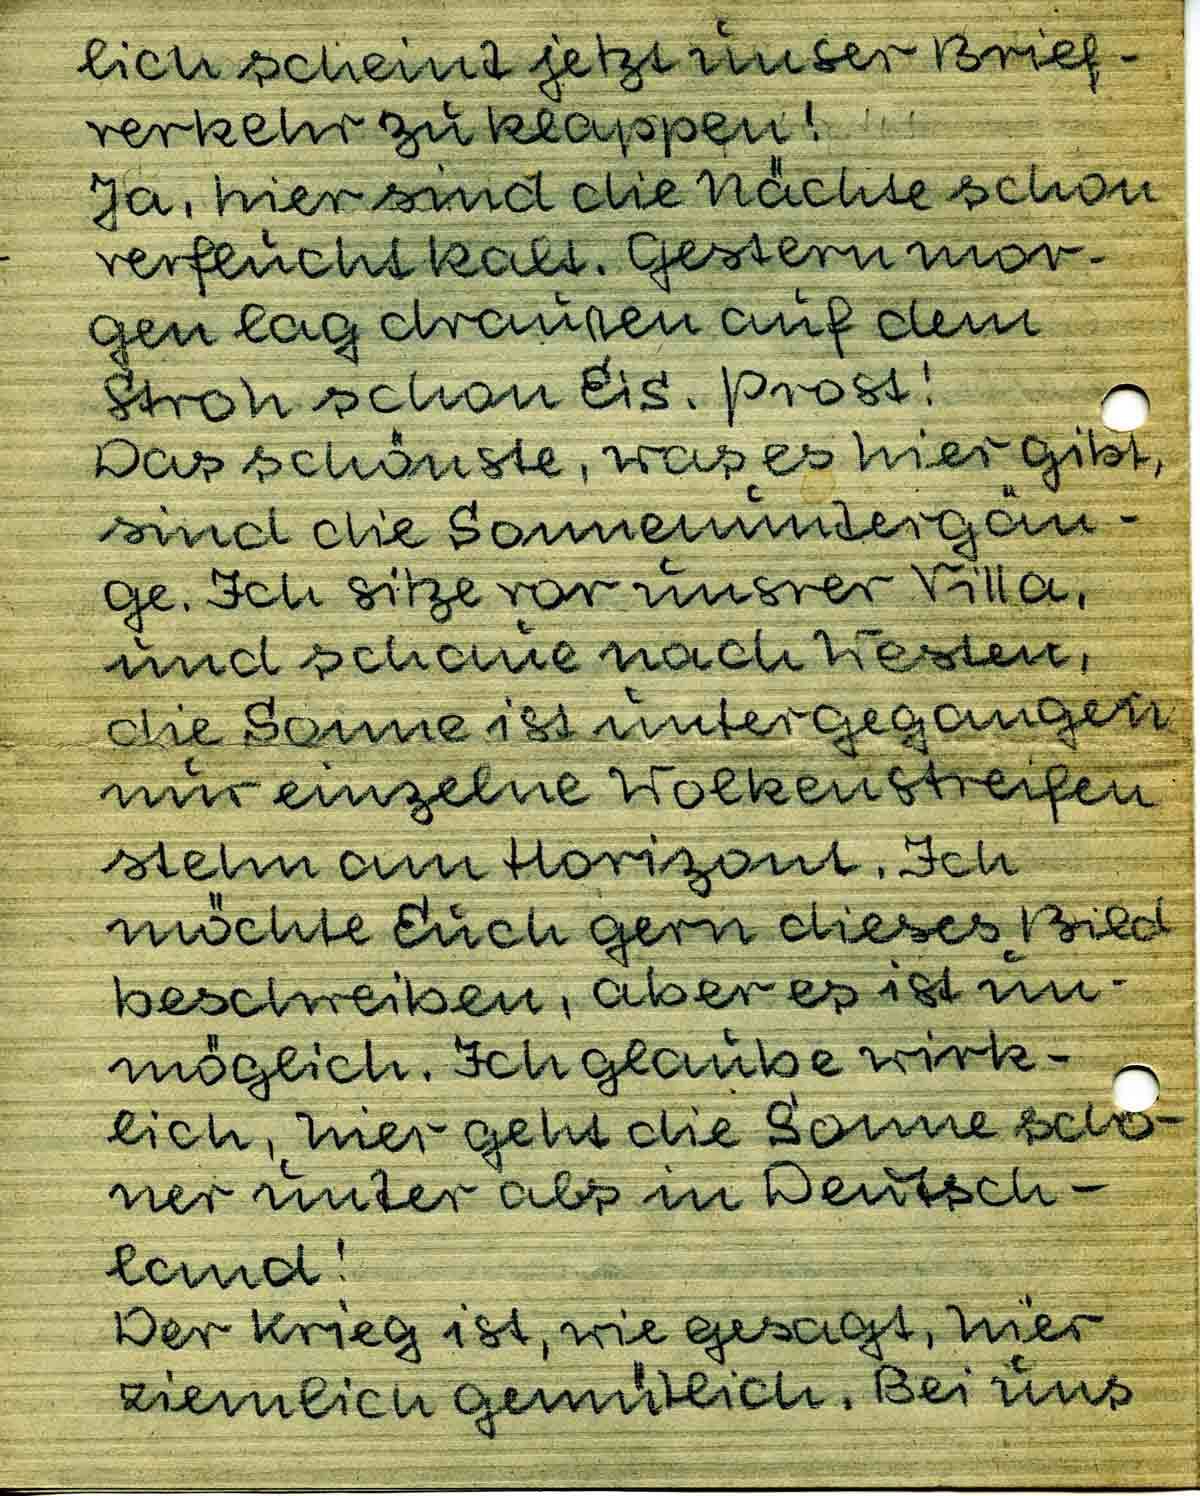 lich scheint jetzt unser Brief-
verkehr zu klappen!
Ja, hier sind die Nächte schon
verflucht kalt. Gestern mor-
gen lag draußen auf dem
Stroh schon Eis. Prost!
Das schönste, was es hier gibt,
sind die Sonnenuntergän-
ge. Ich sitze vor unsrer Villa,
und schaue nach Westen,
die Sonne ist untergegangen
nur einzelne Wolkenstreifen
stehn am Horizont. Ich
möchte Euch gern dieses Bild
beschreiben, aber es ist un-
möglich. Ich glaube wirk-
lich, hier geht die Sonne schö-
ner unter als in Deutsch-
land!
Der Krieg ist, wie gesagt, hier
ziemlich gemütlich. Bei uns